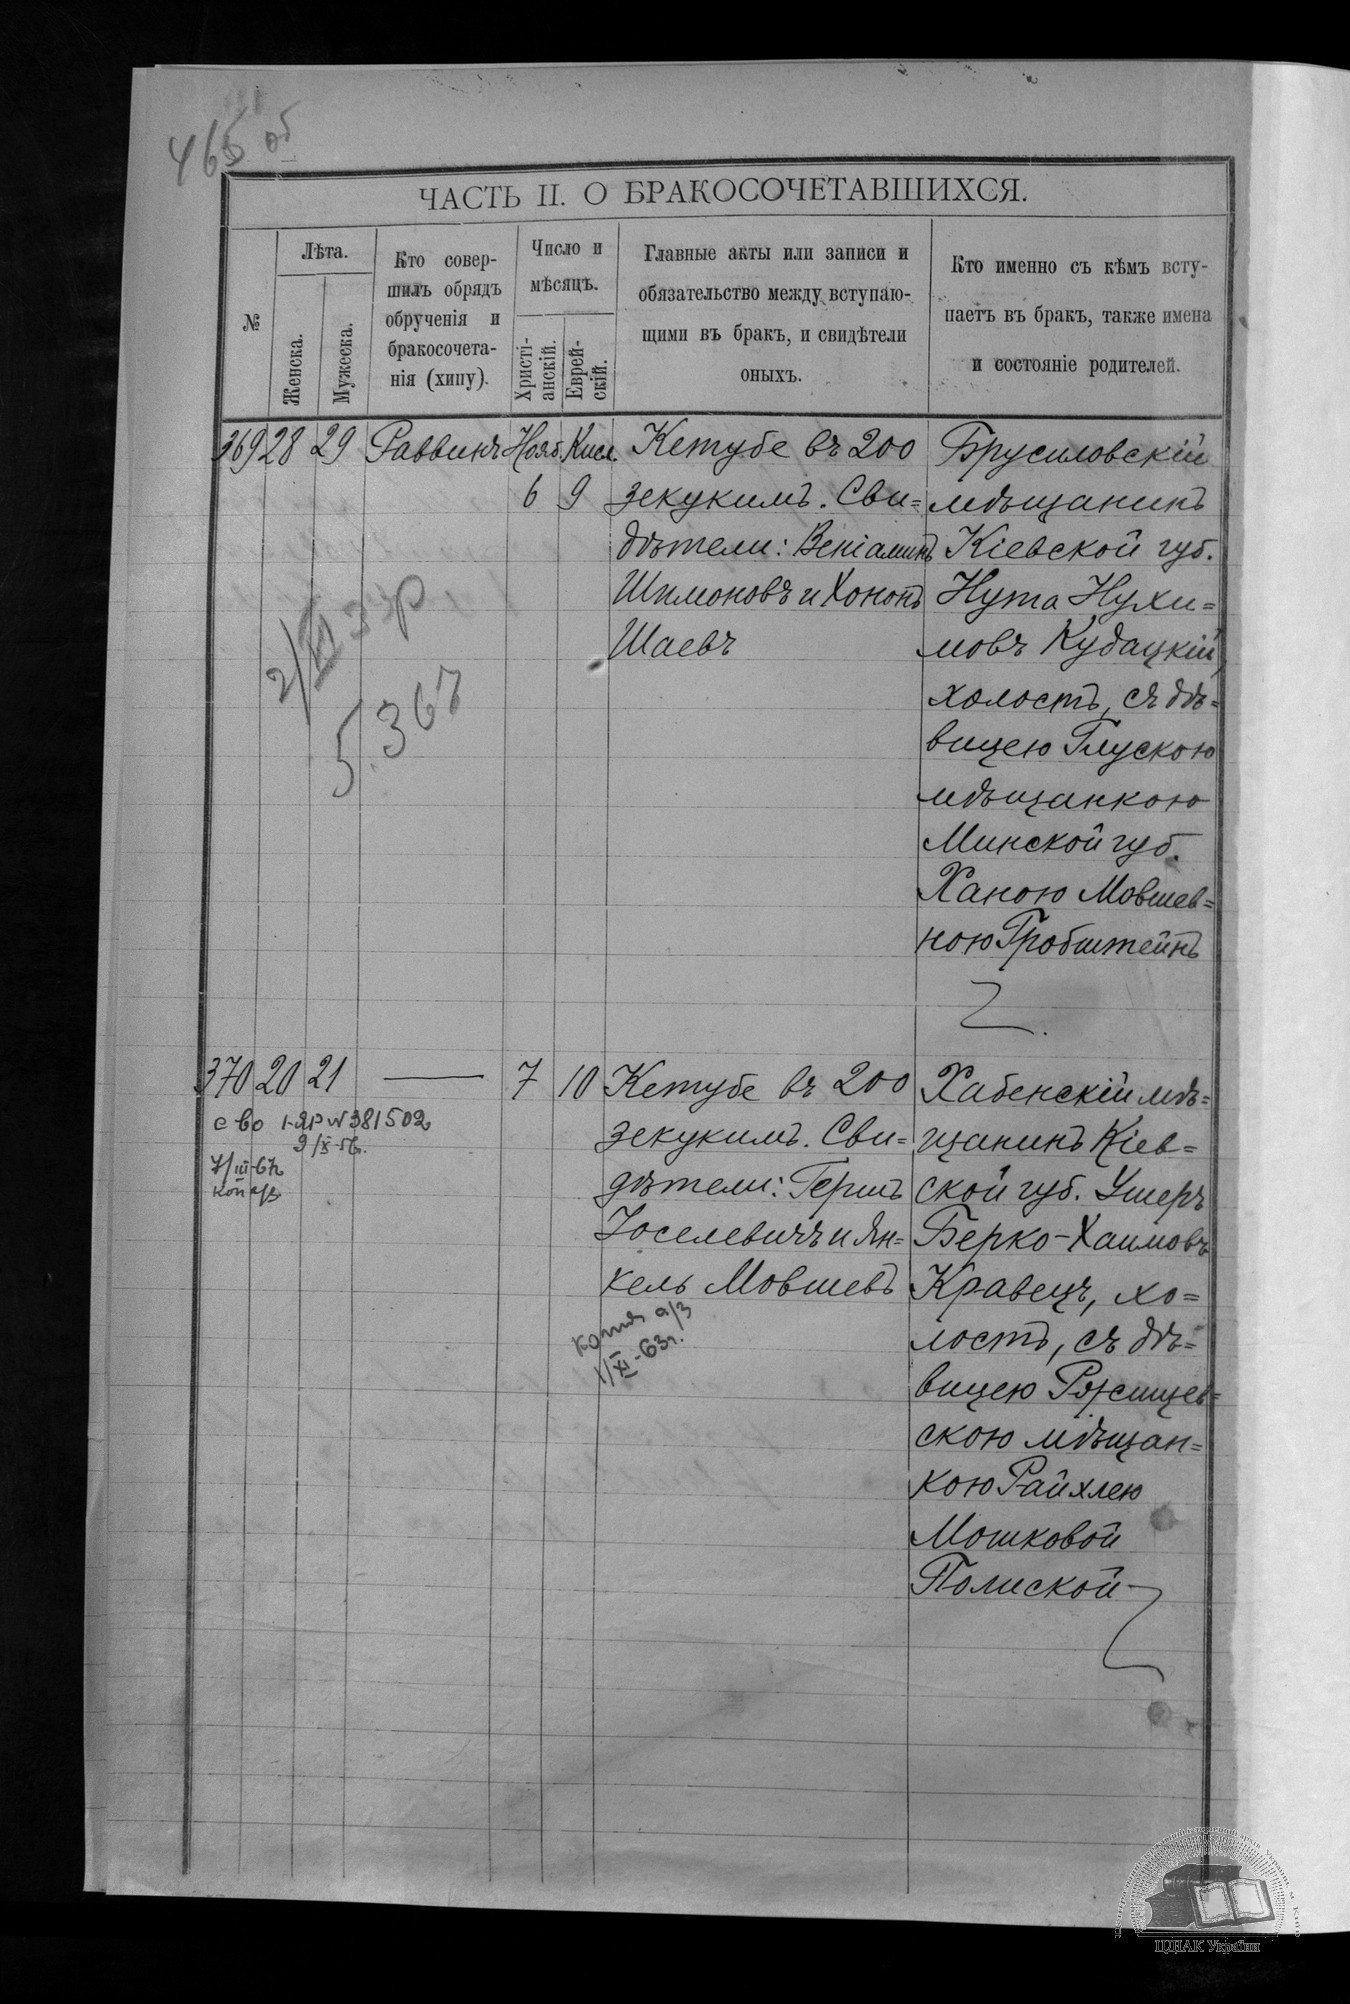 465 об
ЧАСТЬ II. О БРАКОСОЧЕТАВШИХСЯ.
№
Лѣта.
Женска.
Мужеска.
Кто совер-
шилъ обрядъ
обрученія и
бракосочета-
нія (хипу).
Число и
мѣсяцъ.
Христі-
анскій.
Еврей-
скій.
Главные акты или записи и
обязательство между вступаю-
щими въ бракъ, и свидѣтели
оныхъ.
Кто именно съ кѣмъ всту-
паетъ въ бракъ, также имена
и состояніе родителей.
369 28 29 Раввинъ Нояб. Кисл.
6 9
Кетубе въ 200
зекукимъ. Сви=
дѣтели: Веніаминъ
Шимоновъ и Хононъ
Шаевъ
Брусиловскій
мѣщанинъ
Кіевской губ.
Нута Нухи=
мовъ Кудацкій,
холостъ, съ дѣ=
вицею Глускою
мѣщанкою
Минской губ.
Ханою Мовшев=
ною Гробштейнъ
2/XI 33р
5.36ъ
370 20 21 — 7 10
с во 1-ЯР № 381502
9/X-56.
7/III-67г
коп а/з
Кетубе въ 200
зекукимъ. Сви=
дѣтели: Гершъ
Іоселевичъ и Ян=
кель Мовшевъ
копия а/з
1/XI-63г.
Хабенскій мѣ=
щанинъ Кіев=
ской губ. Ушеръ
Берко-Хаимовъ
Кравецъ, хо=
лостъ, съ дѣ=
вицею Ржищев=
скою мѣщан=
кою Райхлею
Мошковой
Полиской
ЦДІАК України